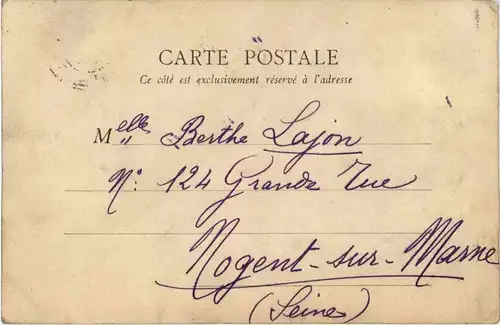 CARTE POSTALE
Ce côté est exclusivement réservé à l'adresse
Melle Berthe Lajon
N°: 124 Grande Rue
Nogent-sur-Marne
(Seine)